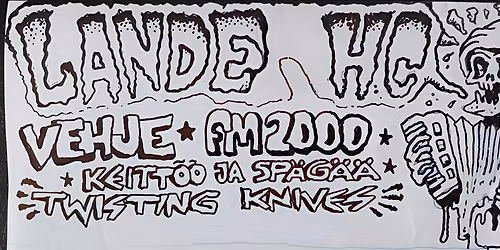 LANDE HC
VEHJE ★ FM2000 ★
★ KEITTÖÖ JA SPÄGÄÄ ★
TWISTING KNIVES